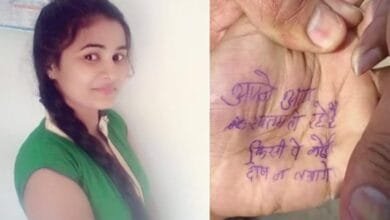 अपने आप
आत्महत्या रहे है
किसी पे कोई
दोष न लगाये